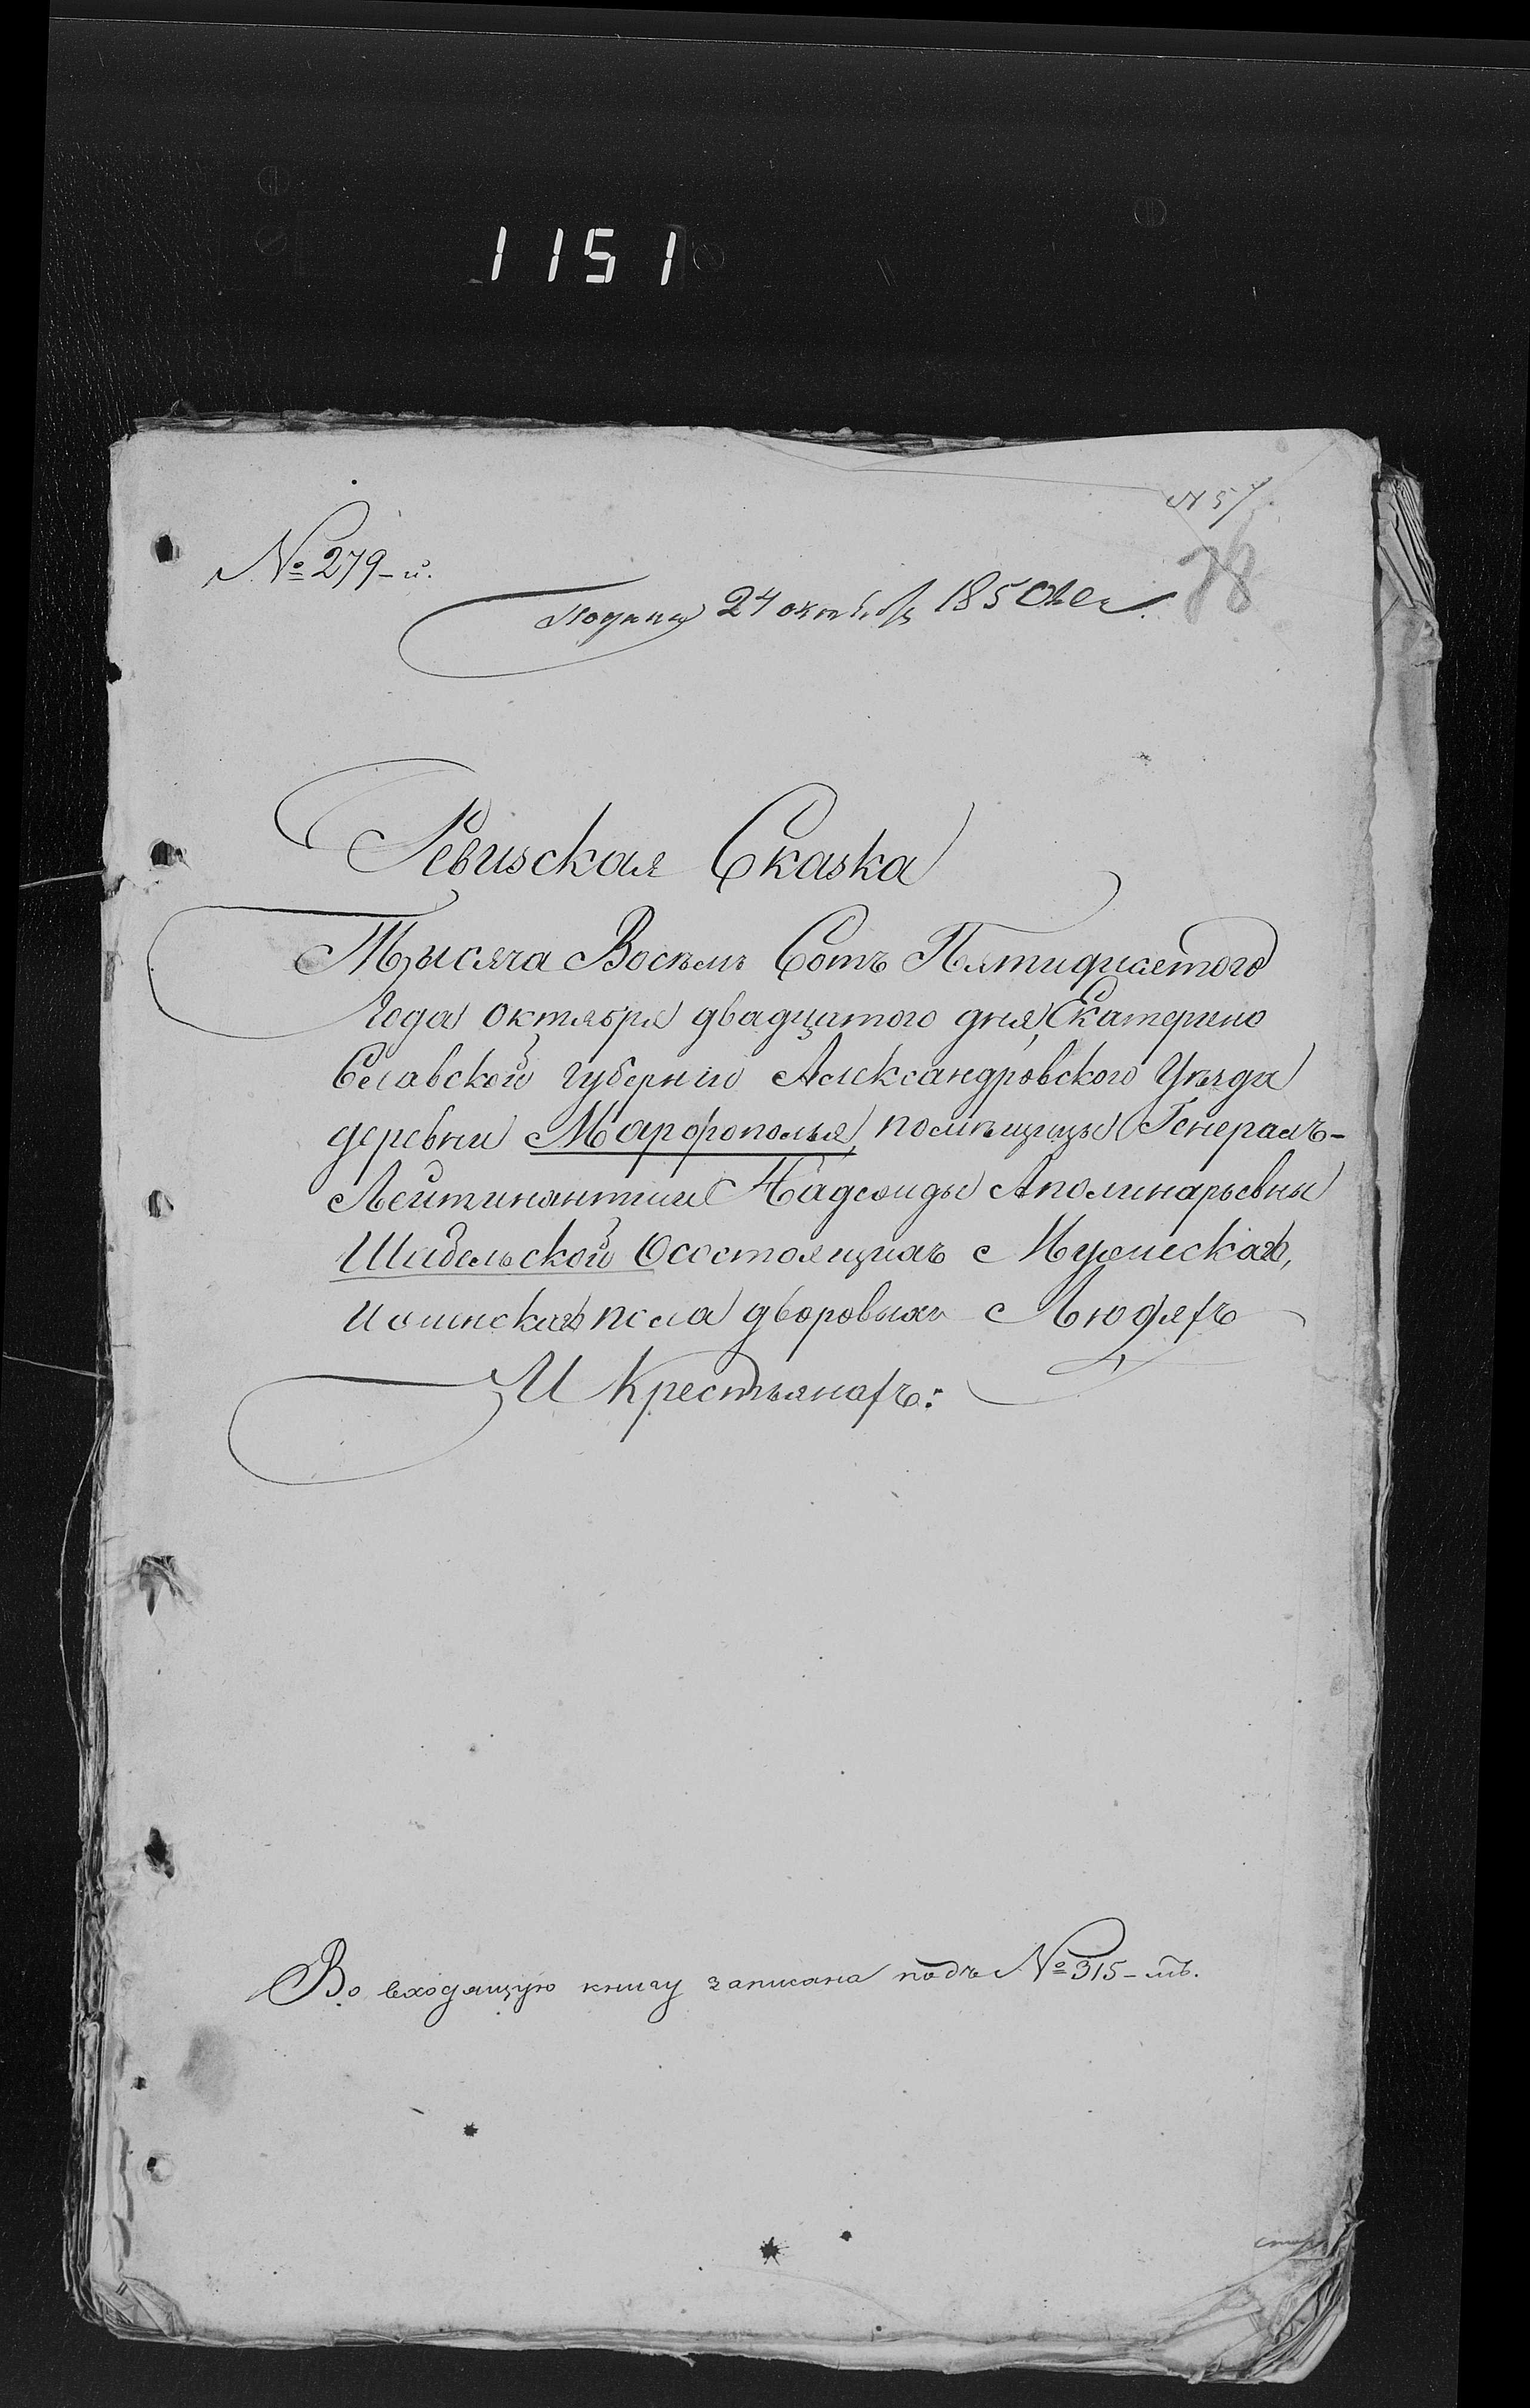 1151
№ 5
78
№ 279-й.
Подана 24 октября 1850 года
Ревизская Сказка
Тысяча Восемь Сотъ Пятидисетого
Года октября двадцатого дня, Екатерино
Славской губерніи Александровского Уѣзда
деревни Марфополья, помѣщицы Генералъ-
Лейтинантши Надежиды Аполинарьевны
Шабельской Осостоящихъ Мужескаго,
и женскаго пола дворовыхъ Людяхъ
И Крестьянахъ:
Во входящую книгу записана подъ № 315-мъ.